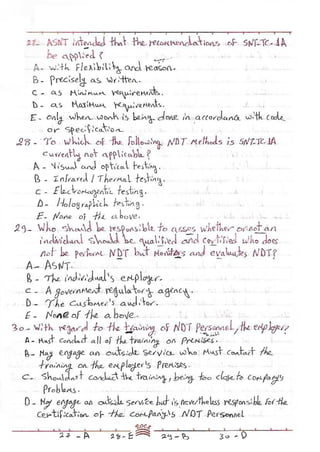 27- ASNT intended that the recommendations of SNT-TC-1A
be applied?
A- with Flexibility and reason.
B- Precisely as written.
C- as Minimum requirements.
D- as Maximum requirements.
E- only when work is being done in accordance with Code
or Specification
28- To which of the following NDT Methods is SNT-TC-1A
currently not applicable?
A- Visual and optical testing.
B- Infrared / Thermal testing.
C- Electromagnetic testing.
D- Holographich testing.
E- None of the above.
29- Who should be responsible to asses whether or not an
individual should be qualified and certified who does
not be perform NDT but Monitors and evaluates NDT?
A- ASNT.
B- The individual's employer.
C- A government regulatory agency.
D- The Customer's auditor.
E- None of the above
30- With regard to the training of NDT Personnel, the employer?
A- Must conduct all of the training on Premises.
B- May engage an outside service who must contact the
training on the employer's Premises.
C- Shouldn't conduct the training, being too close to Company's
Problems.
D- May engage an outside service but is nevertheless responsible for the
Certification of the company's NDT Personnel
27-A 28-E 29-B 30-D